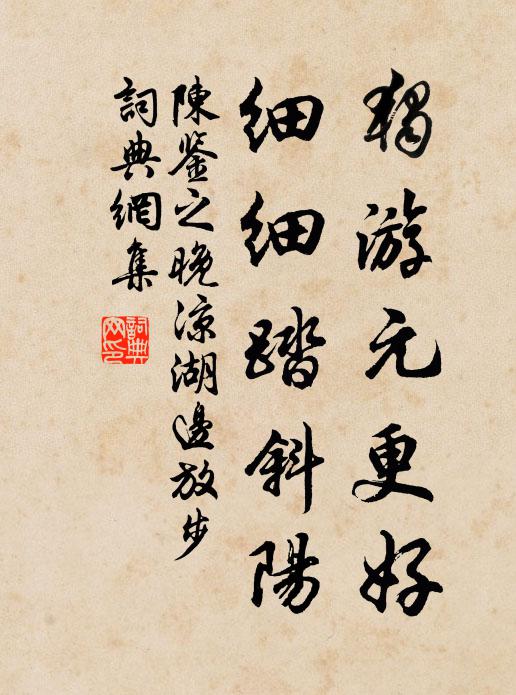 獨游元更好
細細踏斜陽
陳鉴之晚凉湖邊放步
詞典網集
詞典
网印